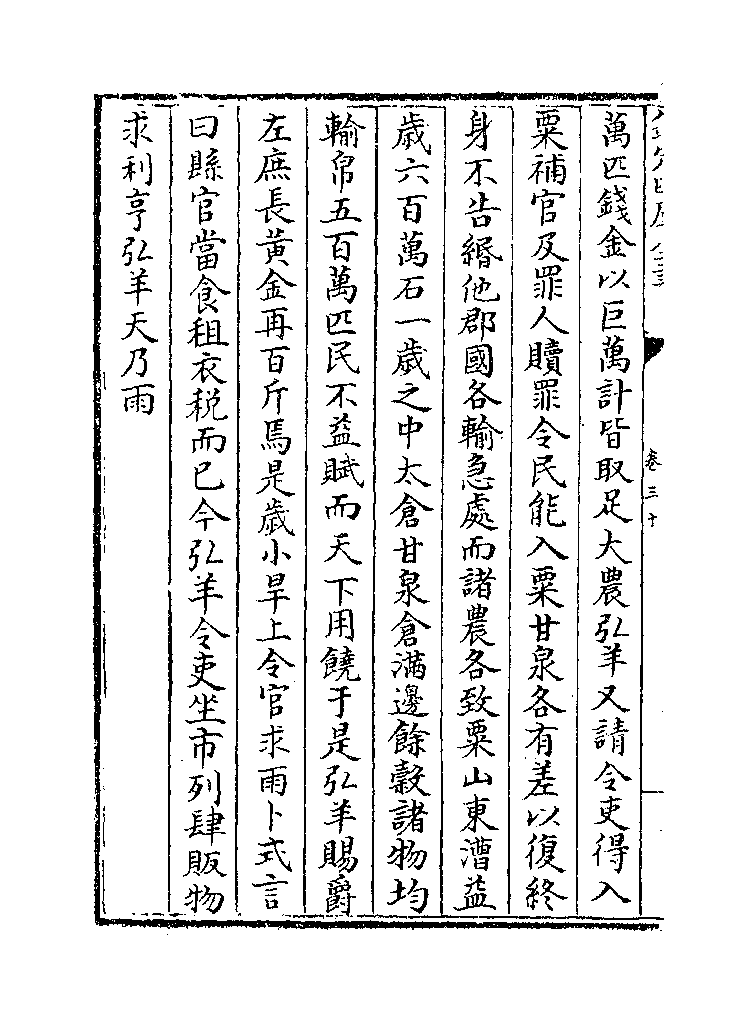 萬匹錢金以巨萬計皆取足大農弘羊又請令吏得入
粟補官及罪人贖罪令民能入粟甘泉各有差以復終
身不告緡他郡國各輸急處而諸農各致粟山東漕益
歲六百萬石一歲之中太倉甘泉倉滿邊餘穀諸物均
輸帛五百萬匹民不益賦而天下用饒于是弘羊賜爵
左庶長黃金再百斤焉是歲小旱上令官求雨卜式言
曰縣官當食租衣稅而已今弘羊令吏坐市列肆販物
求利亨弘羊天乃雨
卷三十